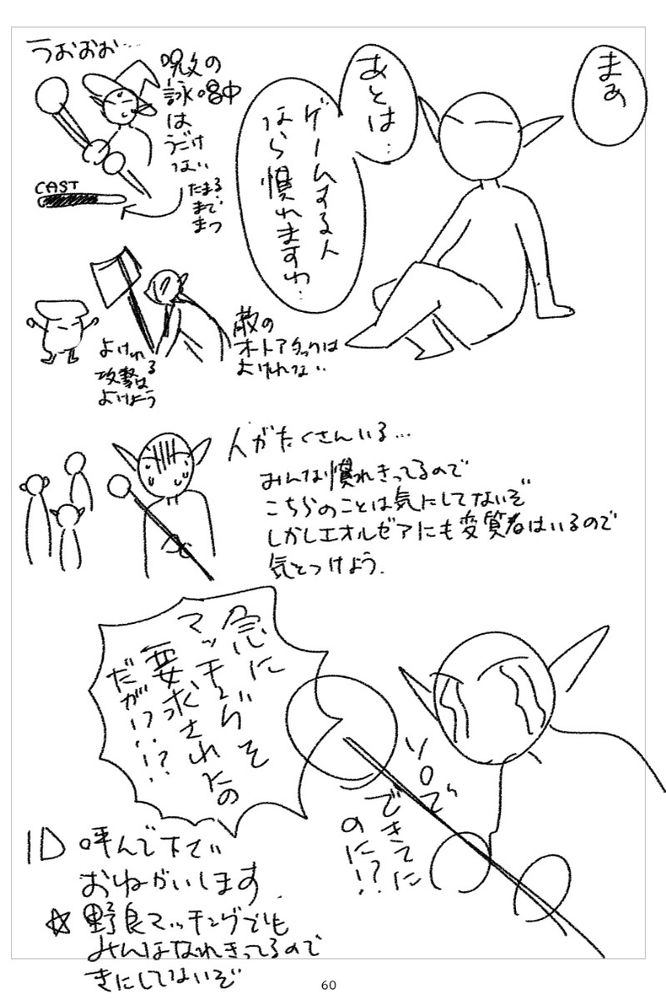 まぁ
あとは…
ゲームする人
なら慣れますわ…
うぉおお…
呪文の
詠唱中
は
うごけ
ない
たまる
まで
まつ
CAST
敵の
オートアタックは
よけれない
よけれる
攻撃は
よけよう
人がたくさんいる…
みんな慣れきってるので
こちらのことは気にしてないぞ
しかしエオルゼアにも変質者はいるので
気をつけよう.
急に
マッチングを
要求されたの
だが!?!?
ソロで
できてた
のに!?
ID 呼んで下さい
おねがいします
☆野良マッチングでも
みんななれきってるので
きにしてないぞ
60